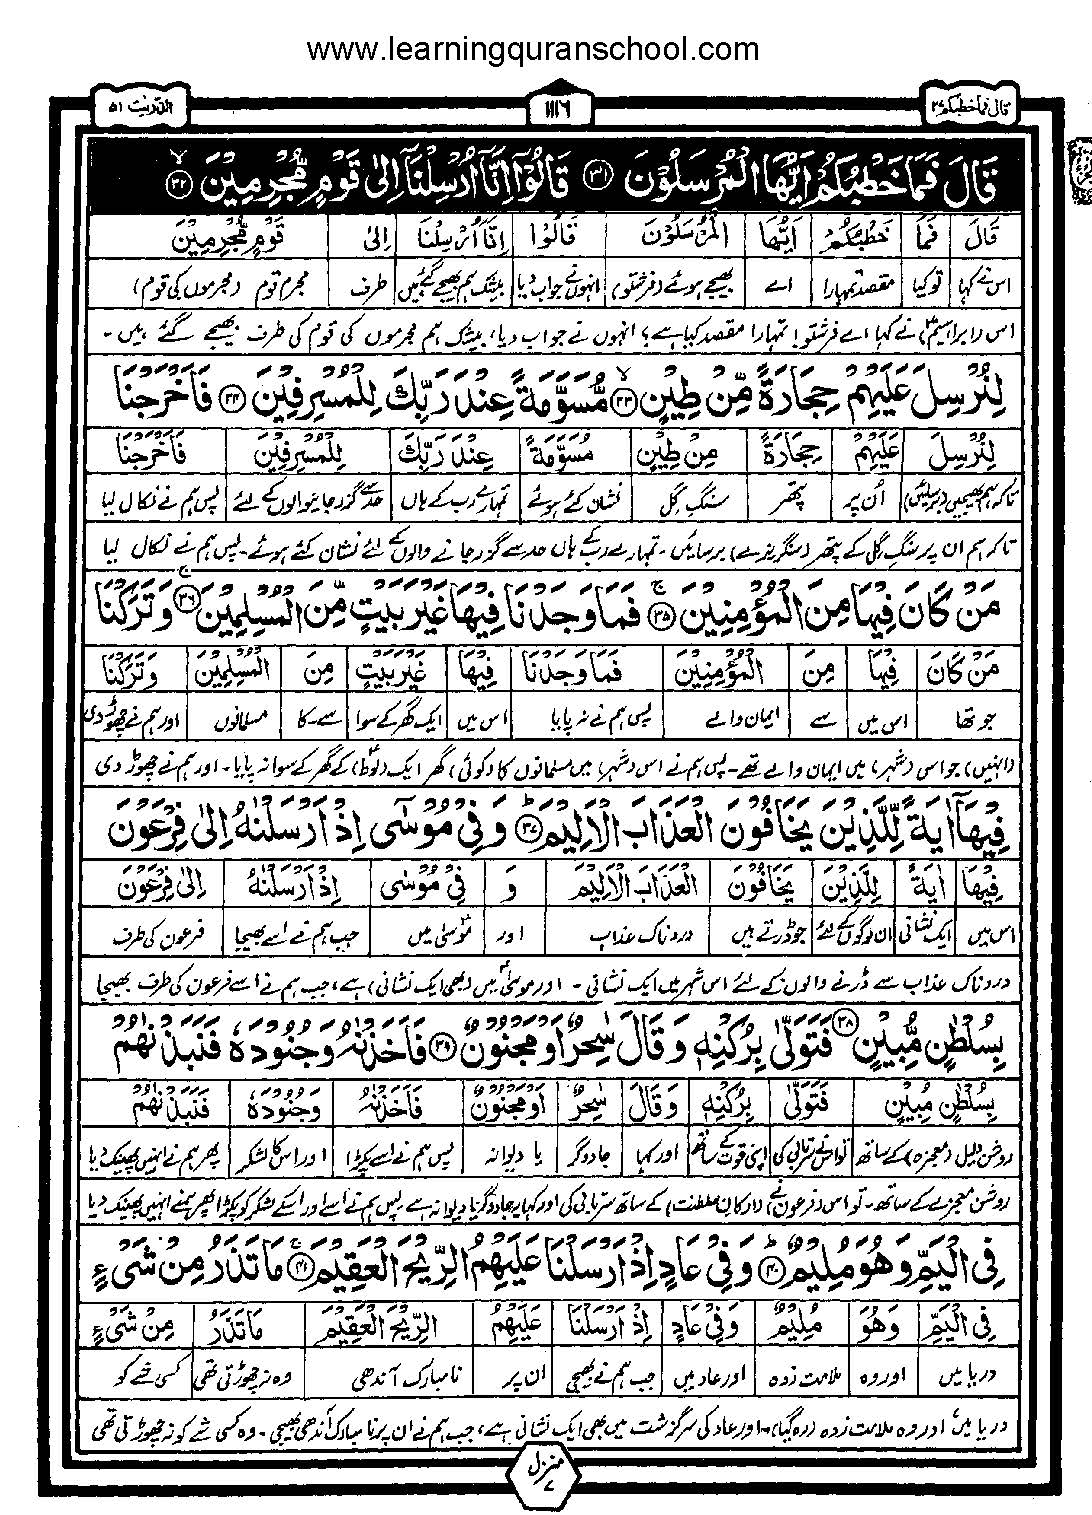 www.learningquranschool.com
قال فما خطبكم ٢٧ ١١١٦ الذٰريٰت ٥١
قَالَ فَمَا خَطْبُكُمْ اَيُّهَا الْمُرْسَلُوْنَ ﴿٣١﴾ قَالُوْۤا اِنَّاۤ اُرْسِلْنَاۤ اِلٰى قَوْمٍ مُّجْرِمِيْنَ ﴿٣٢﴾
قَالَ فَمَا خَطْبُكُمْ اَيُّهَا الْمُرْسَلُوْنَ قَالُوْا اِنَّاۤ اُرْسِلْنَا اِلٰى قَوْمٍ مُّجْرِمِيْنَ
اس نے کہا تو کیا مقصد تمہارا اے بھیجے ہوئے (فرشتو) انہوں نے جواب دیا بیشک ہم بھیجے گئے ہیں طرف مجرم قوم (مجرموں کی قوم)
اس (ابراہیمؑ) نے کہا اے فرشتو! تمہارا مقصد کیا ہے؟ انہوں نے جواب دیا، بیشک ہم مجرموں کی قوم کی طرف بھیجے گئے ہیں۔
لِنُرْسِلَ عَلَيْهِمْ حِجَارَةً مِّنْ طِيْنٍ ﴿٣٣﴾ مُّسَوَّمَةً عِنْدَ رَبِّكَ لِلْمُسْرِفِيْنَ ﴿٣٤﴾ فَاَخْرَجْنَا
لِنُرْسِلَ عَلَيْهِمْ حِجَارَةً مِنْ طِيْنٍ مُسَوَّمَةً عِنْدَ رَبِّكَ لِلْمُسْرِفِيْنَ فَاَخْرَجْنَا
تاکہ ہم بھیجیں (برسائیں) اُن پر پتھر سنگِ گِل نشان کئے ہوئے تمہارے رب کے ہاں حد سے گزر جانیوالوں کے لئے پس ہم نے نکال لیا
تاکہ ہم ان پر سنگِ گِل کے پتھر (سنگریزے) برسائیں۔ تمہارے رب کے ہاں حد سے گزر جانے والوں کے لئے نشان کئے ہوئے۔ پس ہم نے نکال لیا
مَنْ كَانَ فِيْهَا مِنَ الْمُؤْمِنِيْنَ ﴿٣٥﴾ فَمَا وَجَدْنَا فِيْهَا غَيْرَ بَيْتٍ مِّنَ الْمُسْلِمِيْنَ ﴿٣٦﴾ وَتَرَكْنَا
مَنْ كَانَ فِيْهَا مِنَ الْمُؤْمِنِيْنَ فَمَا وَجَدْنَا فِيْهَا غَيْرَ بَيْتٍ مِنَ الْمُسْلِمِيْنَ وَتَرَكْنَا
جو تھا اس میں سے ایمان والے پس ہم نے نہ پایا اس میں ایک گھر کے سوا سے۔ کا مسلمانوں اور ہم نے چھوڑ دی
(انہیں) جو اس (شہر) میں ایمان والے تھے۔ پس ہم نے اس (شہر) میں مسلمانوں کا (کوئی) گھر ایک (لوطؑ) کے گھر کے سوا نہ پایا۔ اور ہم نے چھوڑ دی
فِيْهَاۤ اٰيَةً لِّلَّذِيْنَ يَخَافُوْنَ الْعَذَابَ الْاَلِيْمَ ﴿٣٧﴾ وَفِيْ مُوْسٰۤى اِذْ اَرْسَلْنٰهُ اِلٰى فِرْعَوْنَ
فِيْهَا اٰيَةً لِلَّذِيْنَ يَخَافُوْنَ الْعَذَابَ الْاَلِيْمَ وَ فِيْ مُوْسٰى اِذْ اَرْسَلْنٰهُ اِلٰى فِرْعَوْنَ
اس میں ایک نشانی ان لوگوں کے لئے جو ڈرتے ہیں دردناک عذاب اور موسیٰؑ میں جب ہم نے اسے بھیجا فرعون کی طرف
دردناک عذاب سے ڈرنے والوں کے لئے اس شہر میں ایک نشانی۔ اور موسیٰؑ میں (بھی ایک نشانی) ہے، جب ہم نے اسے فرعون کی طرف بھیجا
بِسُلْطٰنٍ مُّبِيْنٍ ﴿٣٨﴾ فَتَوَلّٰى بِرُكْنِهٖ وَقَالَ سٰحِرٌ اَوْ مَجْنُوْنٌ ﴿٣٩﴾ فَاَخَذْنٰهُ وَجُنُوْدَهٗ فَنَبَذْنٰهُمْ
بِسُلْطٰنٍ مُبِيْنٍ فَتَوَلّٰى بِرُكْنِهٖ وَقَالَ سٰحِرٌ اَوْ مَجْنُوْنٌ فَاَخَذْنٰهُ وَجُنُوْدَهٗ فَنَبَذْنٰهُمْ
روشن دلیل (معجزہ) کے ساتھ تو اس نے سرتابی کی اپنی قوت کے ساتھ اور کہا جادوگر یا دیوانہ پس ہم نے اسے پکڑا اور اس کا لشکر پھر ہم نے انہیں پھینک دیا
روشن معجزے کے ساتھ۔ تو اس (فرعون) نے (ارکانِ سلطنت) کے ساتھ سرتابی کی اور کہا یہ جادوگر یا دیوانہ ہے۔ پس ہم نے اسے اور اسکے لشکر کو پکڑا پھر ہم نے انہیں پھینک دیا
فِي الْيَمِّ وَهُوَ مُلِيْمٌ ﴿٤٠﴾ وَفِيْ عَادٍ اِذْ اَرْسَلْنَا عَلَيْهِمُ الرِّيْحَ الْعَقِيْمَ ﴿٤١﴾ مَا تَذَرُ مِنْ شَيْءٍ
فِي الْيَمِّ وَهُوَ مُلِيْمٌ وَفِيْ عَادٍ اِذْ اَرْسَلْنَا عَلَيْهِمُ الرِّيْحَ الْعَقِيْمَ مَا تَذَرُ مِنْ شَيْءٍ
دریا میں اور وہ ملامت زدہ اور عاد میں جب ہم نے بھیجی ان پر نامبارک آندھی وہ نہ چھوڑتی تھی کسی شے کو
دریا میں، اور وہ ملامت زدہ (رہ گیا)۔ اور عاد کی سرگزشت میں بھی ایک نشانی ہے، جب ہم نے ان پر نامبارک آندھی بھیجی۔ وہ کسی شے کو نہ چھوڑتی تھی
منزل ٧